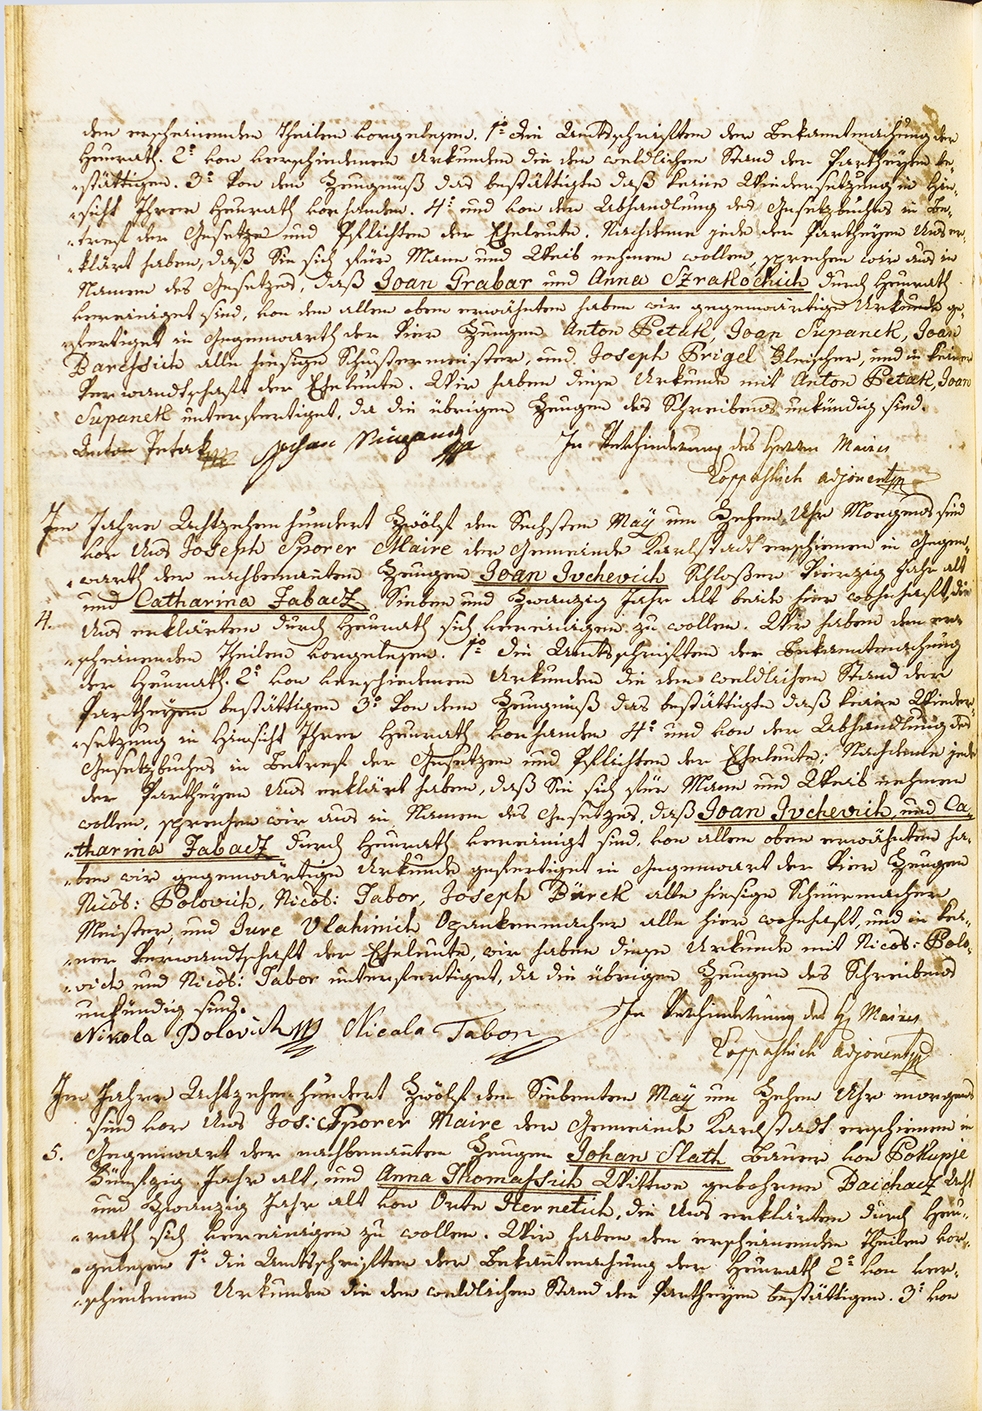 den erscheinenden Theilen vorgelesen. 1º die Amtsschriften der Bekanntmachung der
Heurath. 2º von verschiedenen Urkunden die den weldlichen Stand der Partheyen be-
„stättigen. 3º Von dem Zeugnüß das bestättigte daß keine Wiedersetzung in Hin-
„sicht Ihrer Heurath vorhanden. 4º und von der Abhandlung des Gesetzbuches in Be-
„tref der Gesetze und Pflichten der Eheleute. Nachdeme jede der Partheyen Uns er-
„klärt haben, daß Sie sich für Mann und Weib nehmen wollen, sprechen wir aus in
Namen des Gesetzes, daß Joan Grabar und Anna Szrakochich durch Heurath
vereiniget sind, von dem allen oben erwähnten haben wir gegenwärtige Urkunde ge-
„fertiget in Gegenwarth der Vier Zeugen Anton Petak, Joan Supanek, Joan
Baressich alle hiesige Schustermeister, und Joseph Prigel Fleischer, und in keiner
Verwandtschaft der Eheleute. Wir haben diese Urkunde mit Anton Petak, Joan
Supanek unterfertiget, da die übrigen Zeugen des Schreibens unkündig sind.
Anton Petak In Verhinderung des Herrn Maires
adjoinent
Im Jahre Achtzehen hundert Zwölf den Sechsten May um Zehen Uhr Morgens sind
vor Uns Joseph Sporer Maire der Gemeinde Karlstadt erschienen in Gegen-
„warth der nachbenannten Zeugen Joan Ivchevich Schloßer Vierzig Jahr alt
und Catharina Jabacz Sieben und Zwanzig Jahr alt beide hier wohnhaft, die
4. Uns erklärten durch Heurath sich vereinigen zu wollen. Wir haben den er-
„scheinenden Theilen vorgelesen. 1º die Amtsschriften der Bekanntmachung
der Heurath. 2º von verschiedenen Urkunden die den weldlichen Stand der
Partheyen bestättigen 3º Von dem Zeugnüß das bestättigte daß keine Wieder-
„setzung in Hinsicht Ihrer Heurath vorhanden 4º und von der Abhandlung des
Gesetzbuches in Betref der Gesetzen und Pflichten der Eheleute; Nachdeme jede
der Partheyen Uns erklärt haben, daß Sie sich für Mann und Weib nehmen
wollen, sprechen wir aus in Namen des Gesetzes, daß Joan Ivchevich, und Ca-
„tharina Jabacz durch Heurath vereinigt sind, von allem oben erwähnten ha-
„ben wir gegenwärtige Urkunde gefertiget in Gegenwart der Vier Zeugen
Nicob: Polovich, Nicob: Tabor, Joseph Bürck alle hiesige Schnürmacher
Meister, und Jure Vlahinich Opankenmacher alle hier wohnhaft, und in kei-
„ner Verwandtschaft der Eheleute, wir haben diese Urkunde mit Nicob: Polo-
„vich und Nicob: Tabor unterfertiget, da die übrigen Zeugen des Schreibens
unkündig sind.
Nikola Polovich Nicala Tabor In Verhinderung des H Maires
Adjoinent
Im Jahre Achtzehen hundert Zwölf den Siebenten May um Zehen Uhr morgens
sind vor Uns Jos: Sporer Maire der Gemeinde Karlstadt erschienen in
5. Gegenwart der nachbenannten Zeugen Johan Slath Bauer von Pokupje
Fünfzig Jahr alt, und Anna Thomassich Wittwe gebohrne Baichacz Acht
und Zwanzig Jahr alt von Orte Hernetich, die Uns erklärten durch Heu-
„rath sich vereinigen zu wollen. Wir haben den erscheinenden Theilen vor-
„gelesen 1º die Amtsschriften der Bekanntmachung der Heurath 2º von ver-
„schiedenen Urkunden die den weldlichen Stand der Partheyen bestättigen. 3º von